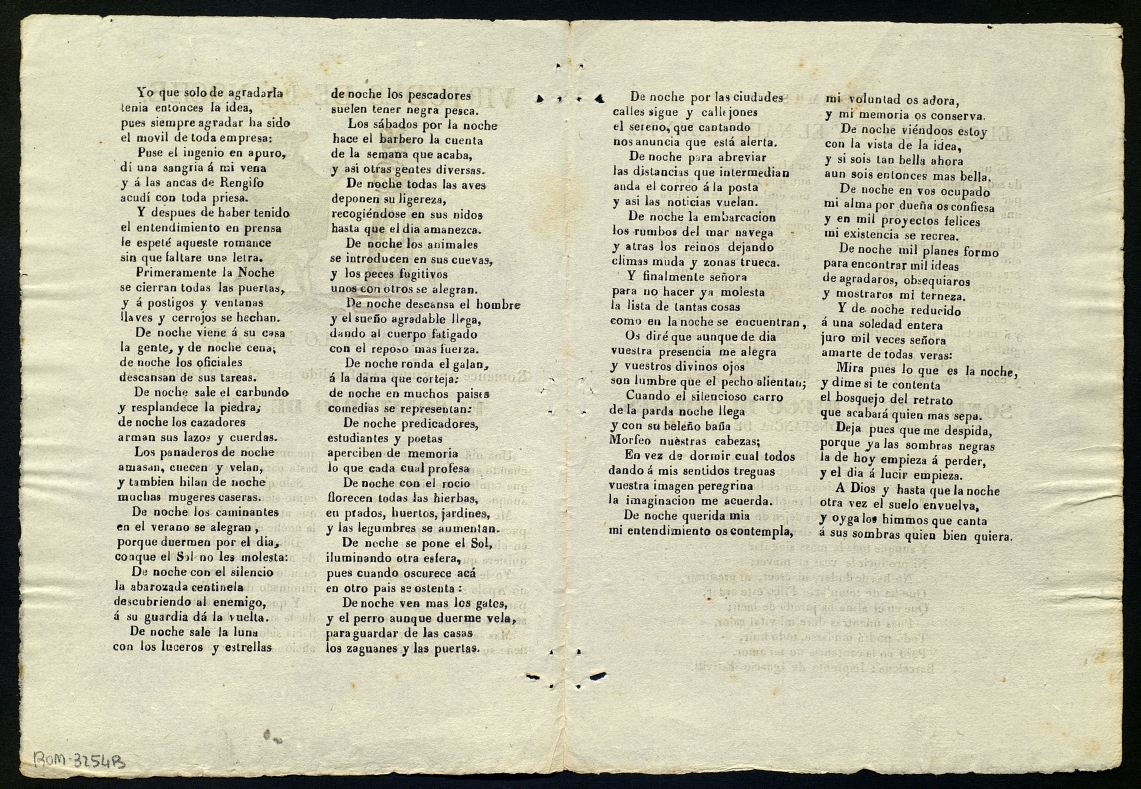 Yo que solo de agradarla
tenia entonces la idea,
pues siempre agradar ha sido
el movil de toda empresa:
Puse el ingenio en apuro,
dí una sangria á mi vena
y á las ancas de Rengifo
acudí con toda priesa.
Y despues de haber tenido
el entendimiento en prensa
le espeté aqueste romance
sin que faltare una letra.
Primeramente la Noche
se cierran todas las puertas,
y á postigos y ventanas
llaves y cerrojos se hechan.
De noche viene á su casa
la gente, y de noche cena;
de noche los oficiales
descansan de sus tareas.
De noche sale el carbundo
y resplandece la piedra;
de noche los cazadores
arman sus lazos y cuerdas.
Los panaderos de noche
amasan, cuecen y velan,
y tambien hilan de noche
muchas mugeres caseras.
De noche los caminantes
en el verano se alegran,
porque duermen por el dia,
conque el Sol no les molesta:
De noche con el silencio
la abarozada centinela
descubriendo al enemigo,
á su guardia dá la vuelta.
De noche sale la luna
con los luceros y estrellas
de noche los pescadores
suelen tener negra pesca.
Los sábados por la noche
hace el barbero la cuenta
de la semana que acaba,
y asi otras gentes diversas.
De noche todas las aves
deponen su ligereza,
recogiéndose en sus nidos
hasta que el dia amanezca.
De noche los animales
se introducen en sus cuevas,
y los peces fugitivos
unos con otros se alegran.
De noche descansa el hombre
y el sueño agradable llega,
dando al cuerpo fatigado
con el reposo mas fuerza.
De noche ronda el galan,
á la dama que corteja:
de noche en muchos paises
comedias se representan:
De noche predicadores,
estudiantes y poetas
aperciben de memoria
lo que cada cual profesa
De noche con el rocio
florecen todas las hierbas,
en prados, huertos, jardines,
y las legumbres se aumentan.
De noche se pone el Sol,
iluminando otra esfera,
pues cuando oscurece acá
en otro pais se ostenta:
De noche ven mas los gatos,
y el perro aunque duerme vela,
para guardar de las casas
los zaguanes y las puertas.
De noche por las ciudades
calles sigue y callejones
el sereno, que cantando
nos anuncia que está alerta.
De noche para abreviar
las distancias que intermedian
anda el correo á la posta
y asi las noticias vuelan.
De noche la embarcacion
los rumbos del mar navega
y atras los reinos dejando
climas muda y zonas trueca.
Y finalmente señora
para no hacer ya molesta
la lista de tantas cosas
como en la noche se encuentran,
Os diré que aunque de dia
vuestra presencia me alegra
y vuestros divinos ojos
son lumbre que el pecho alientan;
Cuando el silencioso carro
de la parda noche llega
y con su beleño baña
Morfeo nuestras cabezas;
En vez de dormir cual todos
dando á mis sentidos treguas
vuestra imagen peregrina
la imaginacion me acuerda.
De noche querida mia
mi entendimiento os contempla,
mi voluntad os adora,
y mi memoria os conserva.
De noche viéndoos estoy
con la vista de la idea,
y si sois tan bella ahora
aun sois entonces mas bella.
De noche en vos ocupado
mi alma por dueña os confiesa
y en mil proyectos felices
mi existencia se recrea.
De noche mil planes formo
para encontrar mil ideas
de agradaros, obsequiaros
y mostraros mi terneza.
Y de noche reducido
á una soledad entera
juro mil veces señora
amarte de todas veras:
Mira pues lo que es la noche,
y dime si te contenta
el bosquejo del retrato
que acabará quien mas sepa.
Deja pues que me despida,
porque ya las sombras negras
la de hoy empieza á perder,
y el dia á lucir empieza.
A Dios y hasta que la noche
otra vez el suelo envuelva,
y oyga los himmos que canta
á sus sombras quien bien quiera.
ROM-3254B